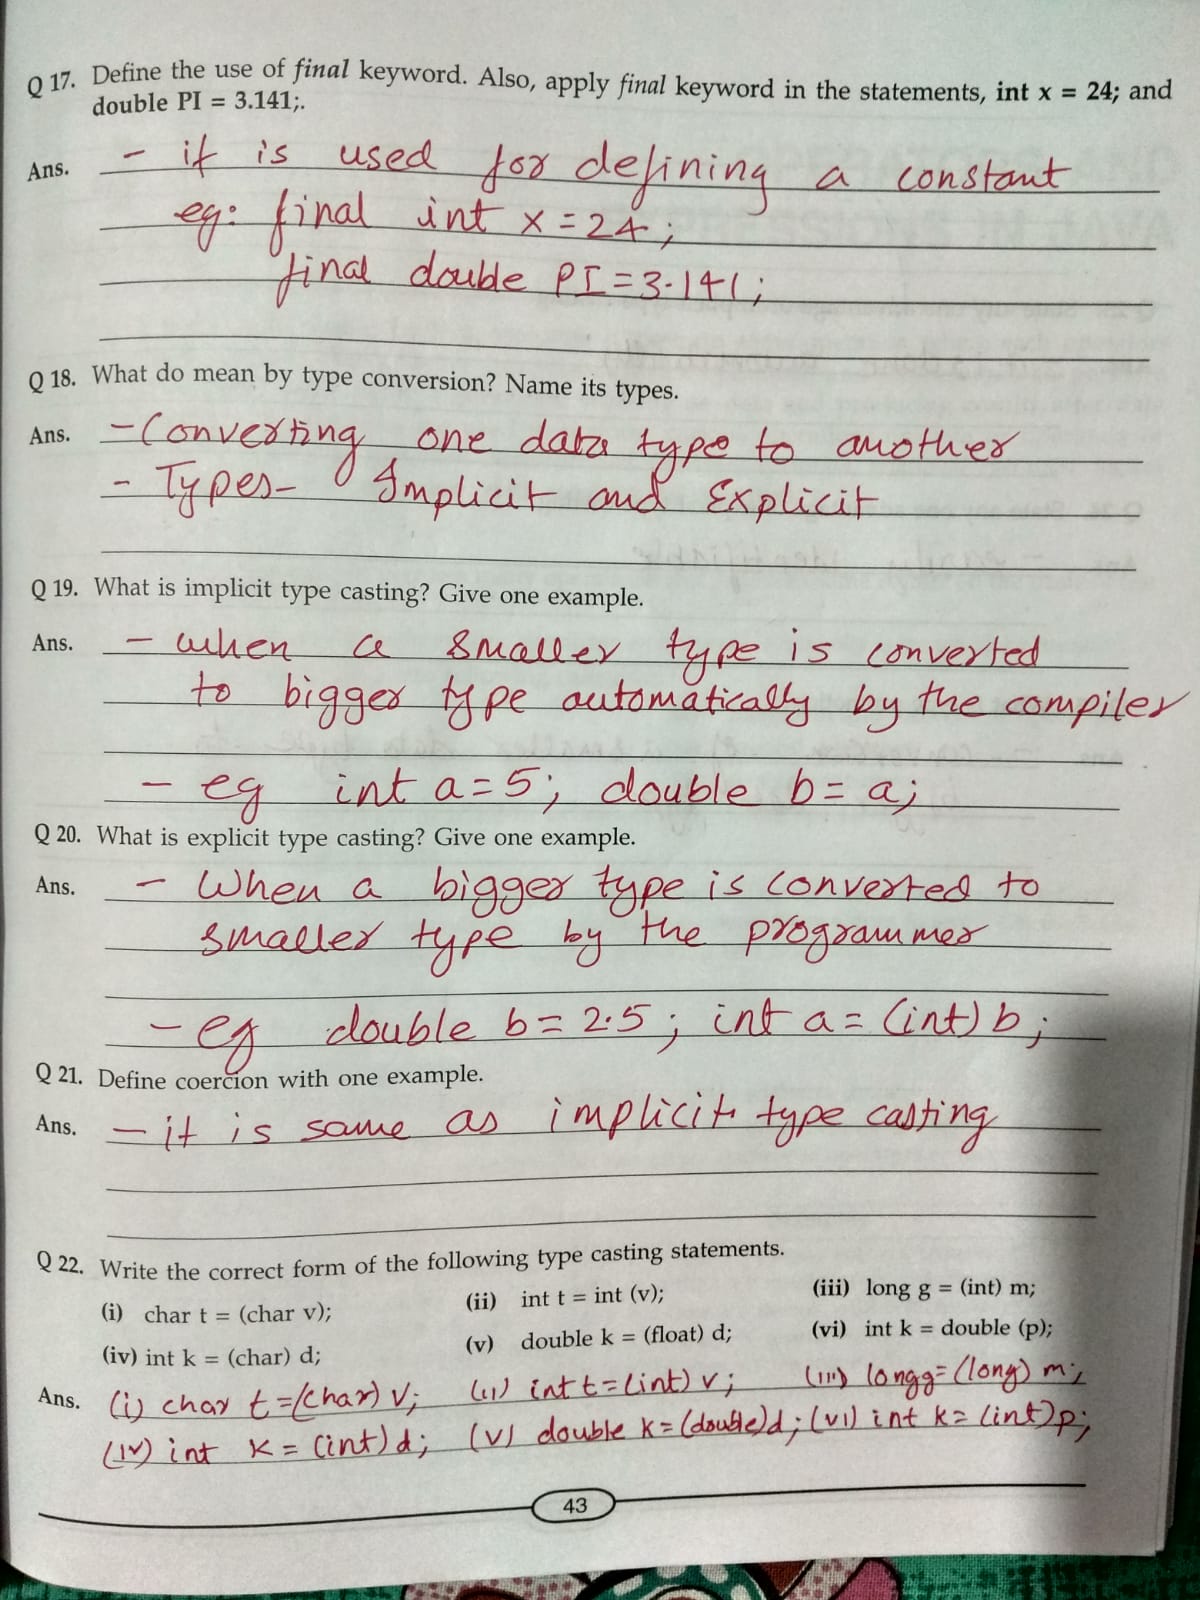 Q 17. Define the use of final keyword. Also, apply final keyword in the statements, int x = 24; and
double PI = 3.141;.
Ans. - it is used for defining a constant
eg: final int x = 24;
final double PI = 3.141;
Q 18. What do mean by type conversion? Name its types.
Ans. - Converting one data type to another
- Types- Implicit and Explicit
Q 19. What is implicit type casting? Give one example.
Ans. - when a smaller type is converted
to bigger type automatically by the compiler
- eg int a=5; double b=a;
Q 20. What is explicit type casting? Give one example.
Ans. - When a bigger type is converted to
smaller type by the programmer
- eg double b= 2.5; int a= (int) b;
Q 21. Define coercion with one example.
Ans. - it is same as implicit type casting
Q 22. Write the correct form of the following type casting statements.
(i) char t = (char v); (ii) int t = int (v); (iii) long g = (int) m;
(iv) int k = (char) d; (v) double k = (float) d; (vi) int k = double (p);
Ans. (i) char t=(char) v; (ii) int t=(int) v; (iii) long g=(long) m;
(iv) int k= (int) d; (v) double k=(double)d; (vi) int k= (int)p;
43